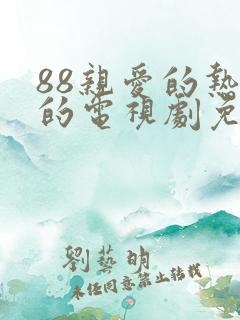 88親愛的熱
的電視劇免
劉藝明
未經同意禁止轉載